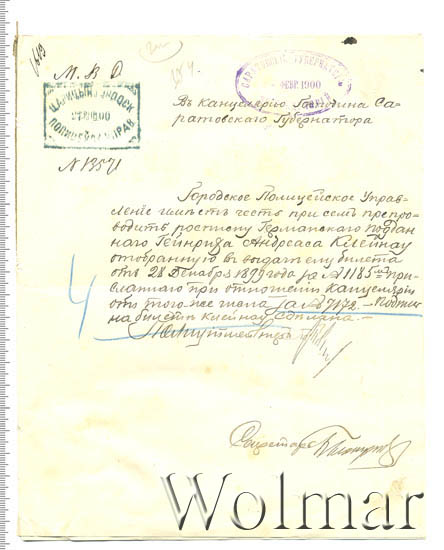 М. В. Д.
ЦАРИЦЫНСК. ГОРОДСК.
ПОЛИЦЕЙСК. УПРАВ.
№ 13571
САРАТОВСК. ГУБЕРНАТОРА
ФЕВР. 1900
Въ Канцелярію Господина Са-
ратовскаго Губернатора
Городское Полицейское Управ-
леніе имѣетъ честь при семъ препро-
водить росписку Германскаго поддан-
наго Гейнриха Андреаса Клейнау
отобранную въ выдачѣ ему билета
отъ 28 Декабря 1899 года за № 11185 при-
сланнаго при отношеніи Канцеляріи
отъ того-же числа за № 7172. – Подпись
на билетѣ Клейнау сдѣлана. –
Полиціймейстеръ
Секретарь
Wolmar